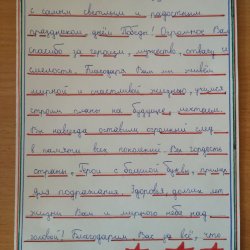 с самым светлым и радостным
праздником днём Победы! Огромное Вам
спасибо за героизм, мужество, отвагу и
смелость. Благодаря Вам мы живём
мирной и счастливой жизнью, учимся
строим планы на будущее, мечтаем.
Вы навсегда оставили огромный след
в памяти всех поколений. Вы гордость
страны, Герои с большой буквы, пример
для подражания. Здоровья, долгих лет
жизни Вам и мирного неба над
головой! Благодарим Вас за всё, что